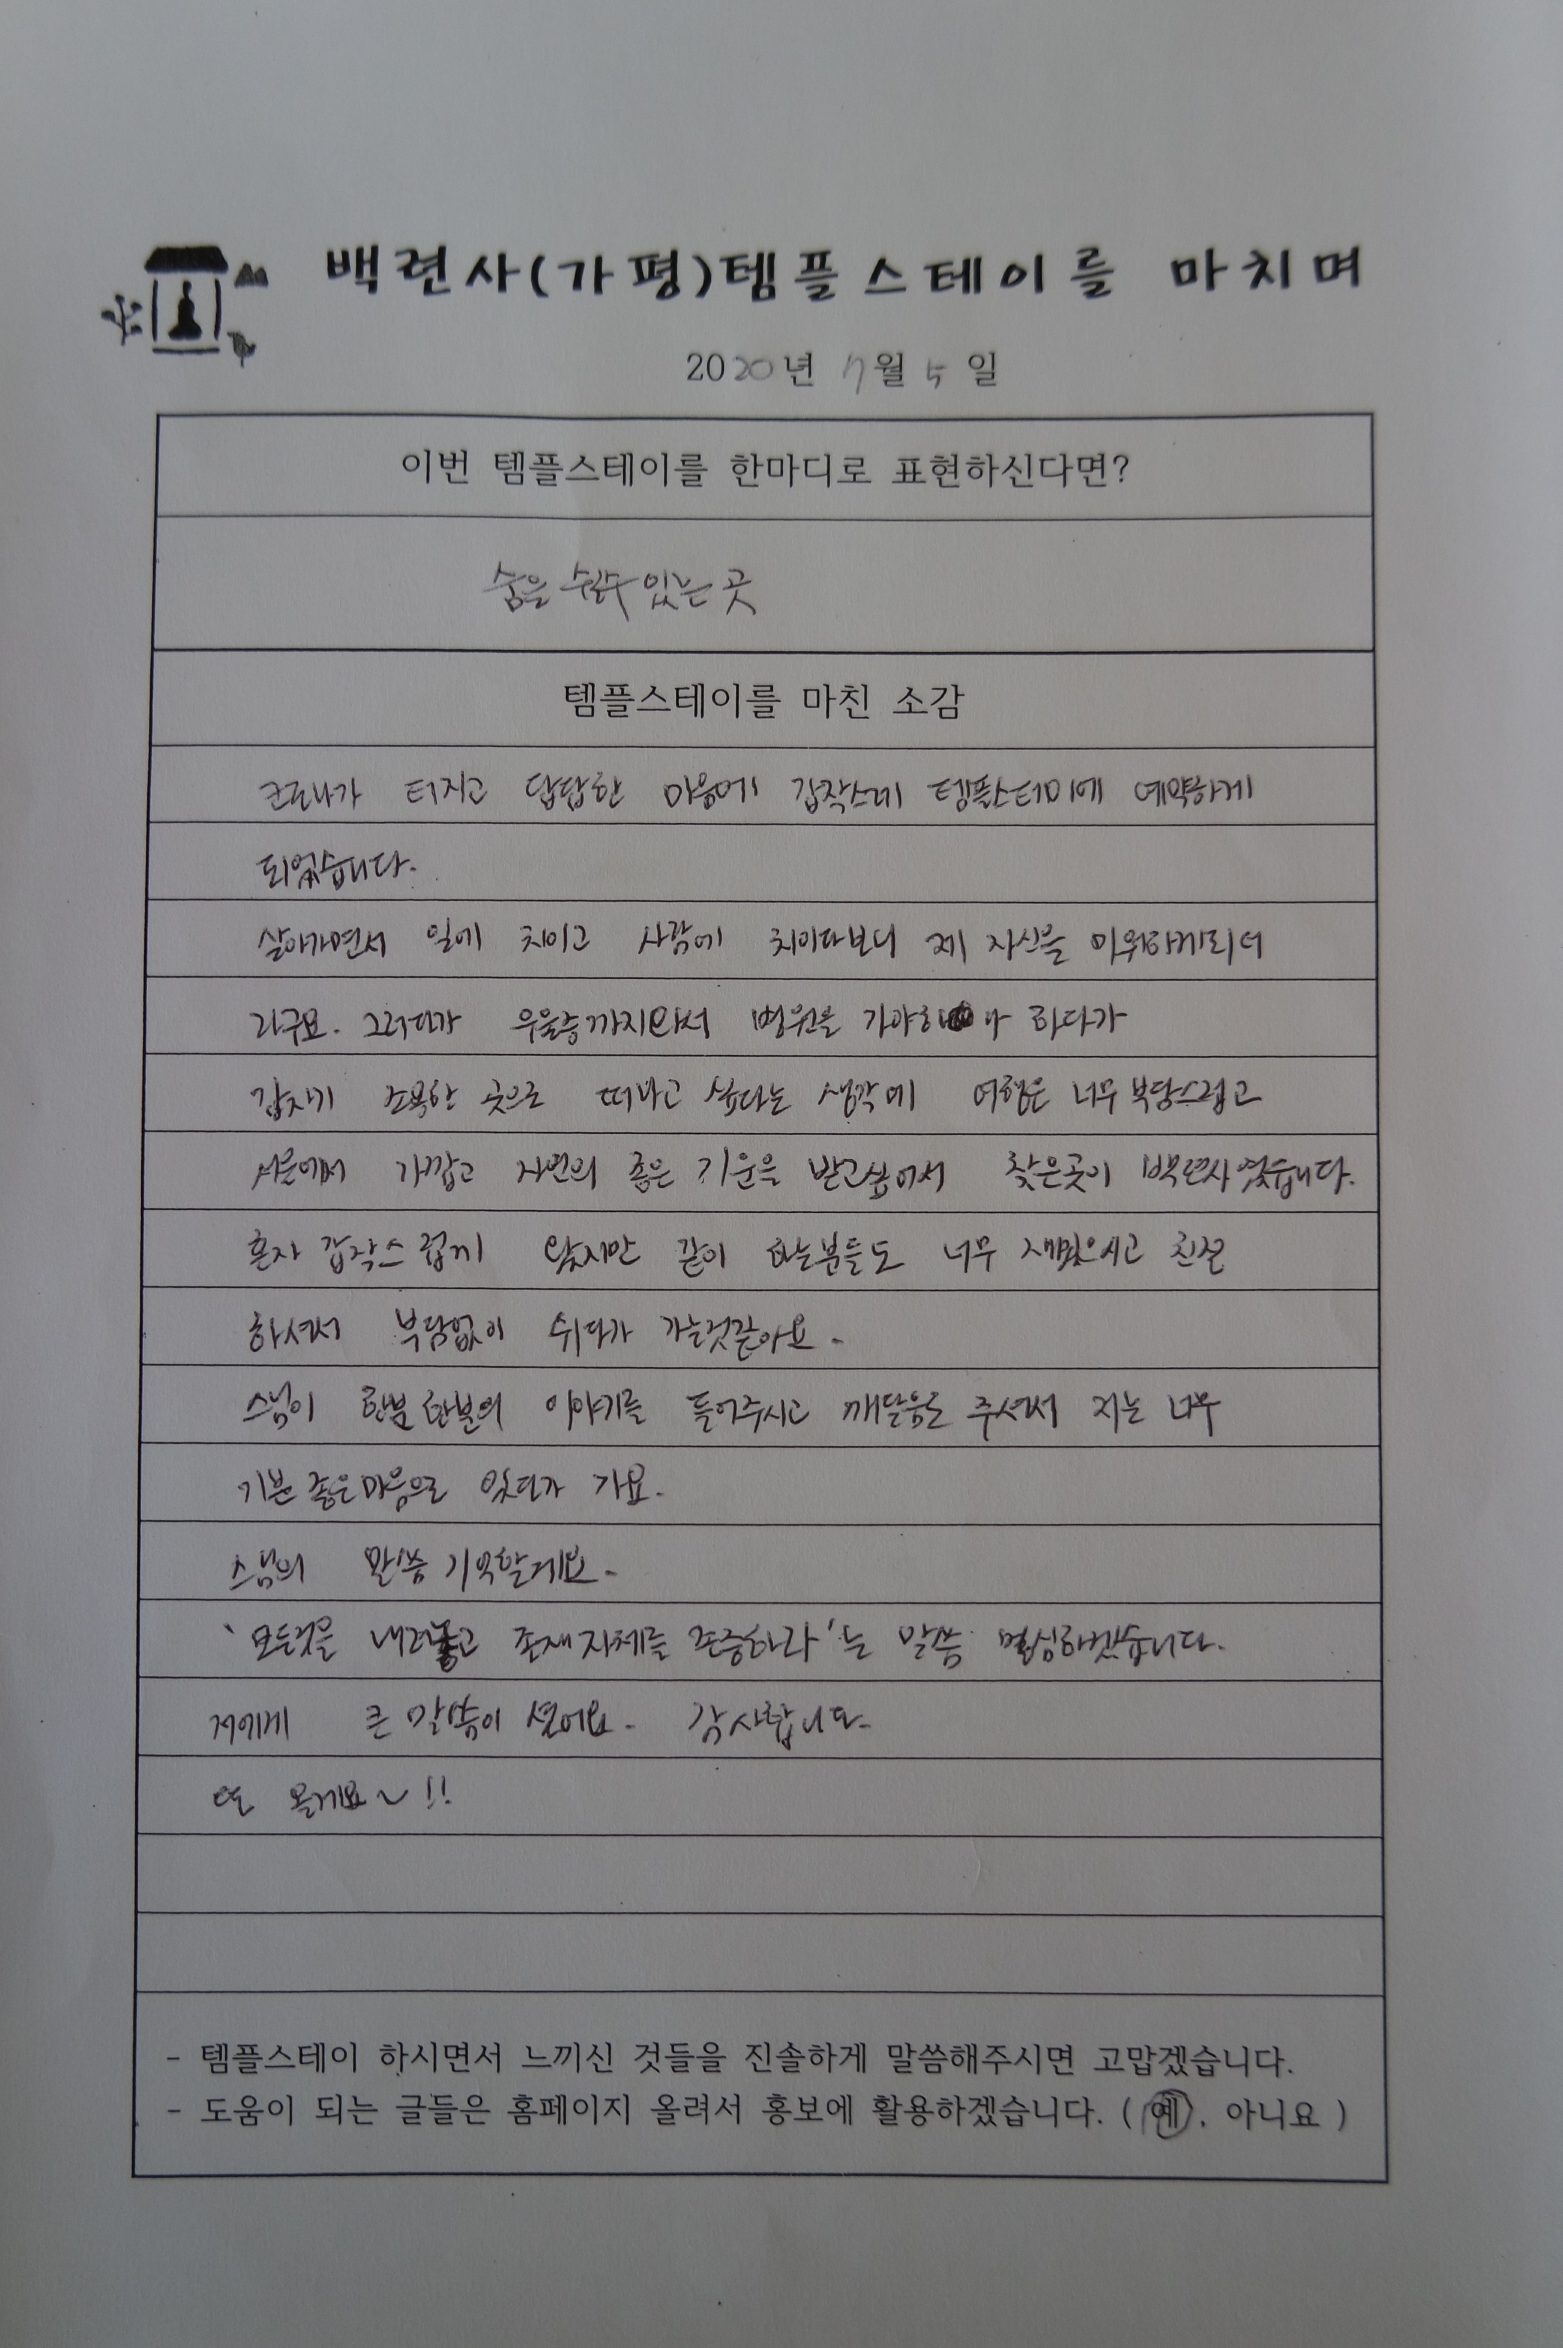 백련사(가평)템플스테이를 마치며
2020년 7월 5일
이번 템플스테이를 한마디로 표현하신다면?
숨을 쉴수 있는 곳
템플스테이를 마친 소감
코로나가 터지고 답답한 마음에 갑작스레 템플스테이에 예약하게
되었습니다.
살아가면서 일에 치이고 사람에 치이다보니 제 자신을 미워하게되더
라구요. 그러다가 우울증까지와서 병원을 가야하나 하다가
갑자기 조용한 곳으로 떠나고 싶다는 생각에 여행은 너무 부담스럽고
서울에서 가깝고 자연의 좋은 기운을 받고싶어서 찾은곳이 백련사였습니다.
혼자 갑작스럽게 왔지만 같이 하는분들도 너무 재밌으시고 친절
하셔서 부담없이 쉬다가 가는것같아요.
스님이 한분 한분의 이야기를 들어주시고 깨달음도 주셔서 저는 너무
기분 좋은마음으로 있다가 가요.
스님의 말씀 기억할게요.
'모든것을 내려놓고 존재자체를 존중하라'는 말씀 명심하겠습니다.
저에게 큰 말씀이 셨어요. 감사합니다.
또 올게요~!!
- 템플스테이 하시면서 느끼신 것들을 진솔하게 말씀해주시면 고맙겠습니다.
- 도움이 되는 글들은 홈페이지 올려서 홍보에 활용하겠습니다. ( 예, 아니요 )